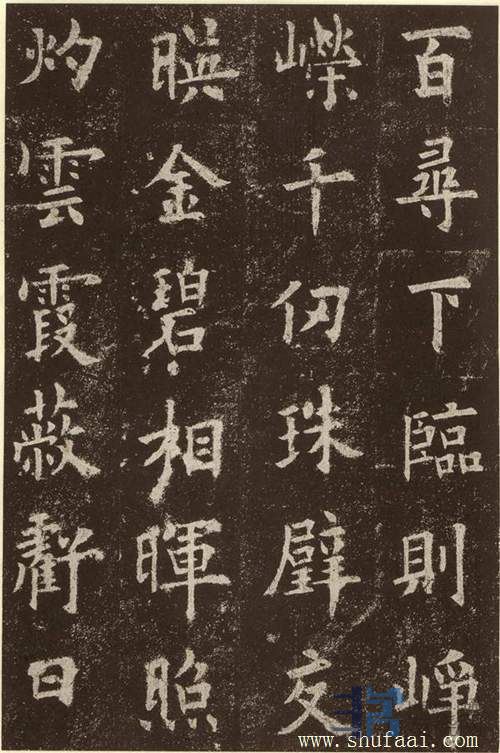 百尋下臨則崢
嶸千仞珠璧交
暎金碧相暉照
灼雲霞蔽虧日
www.shufaai.com